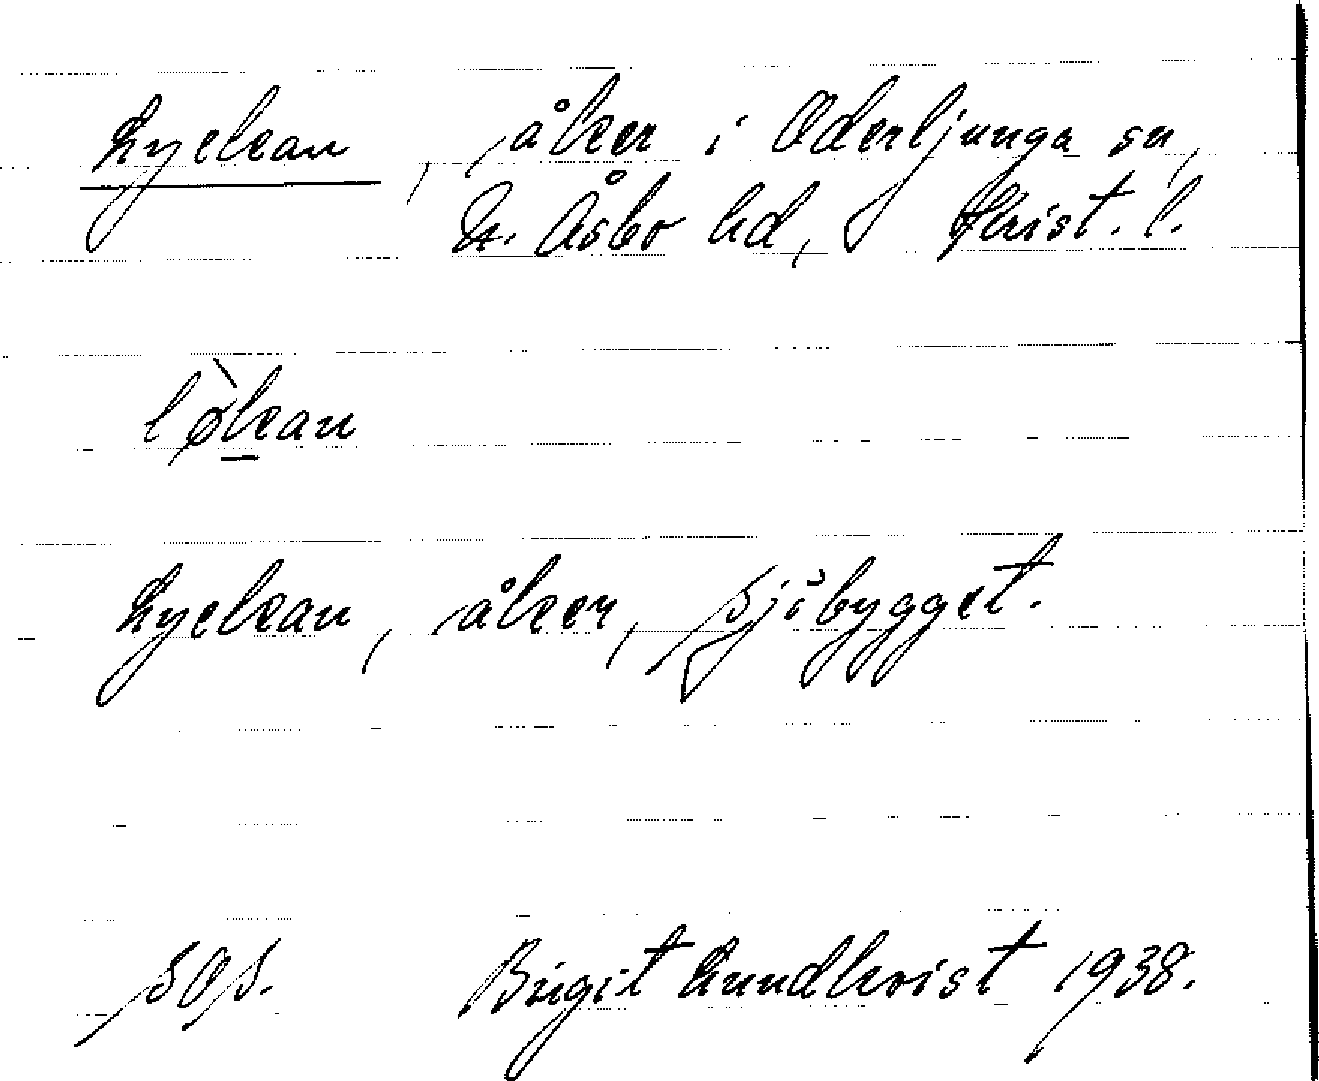 Lyckan, åker i Oderljunga sn,
N. Åsbo hd, Krist. l.
lø̀kan
Lyckan, åker, Sjöbygget.
SOS. Birgit Lundkvist 1938.